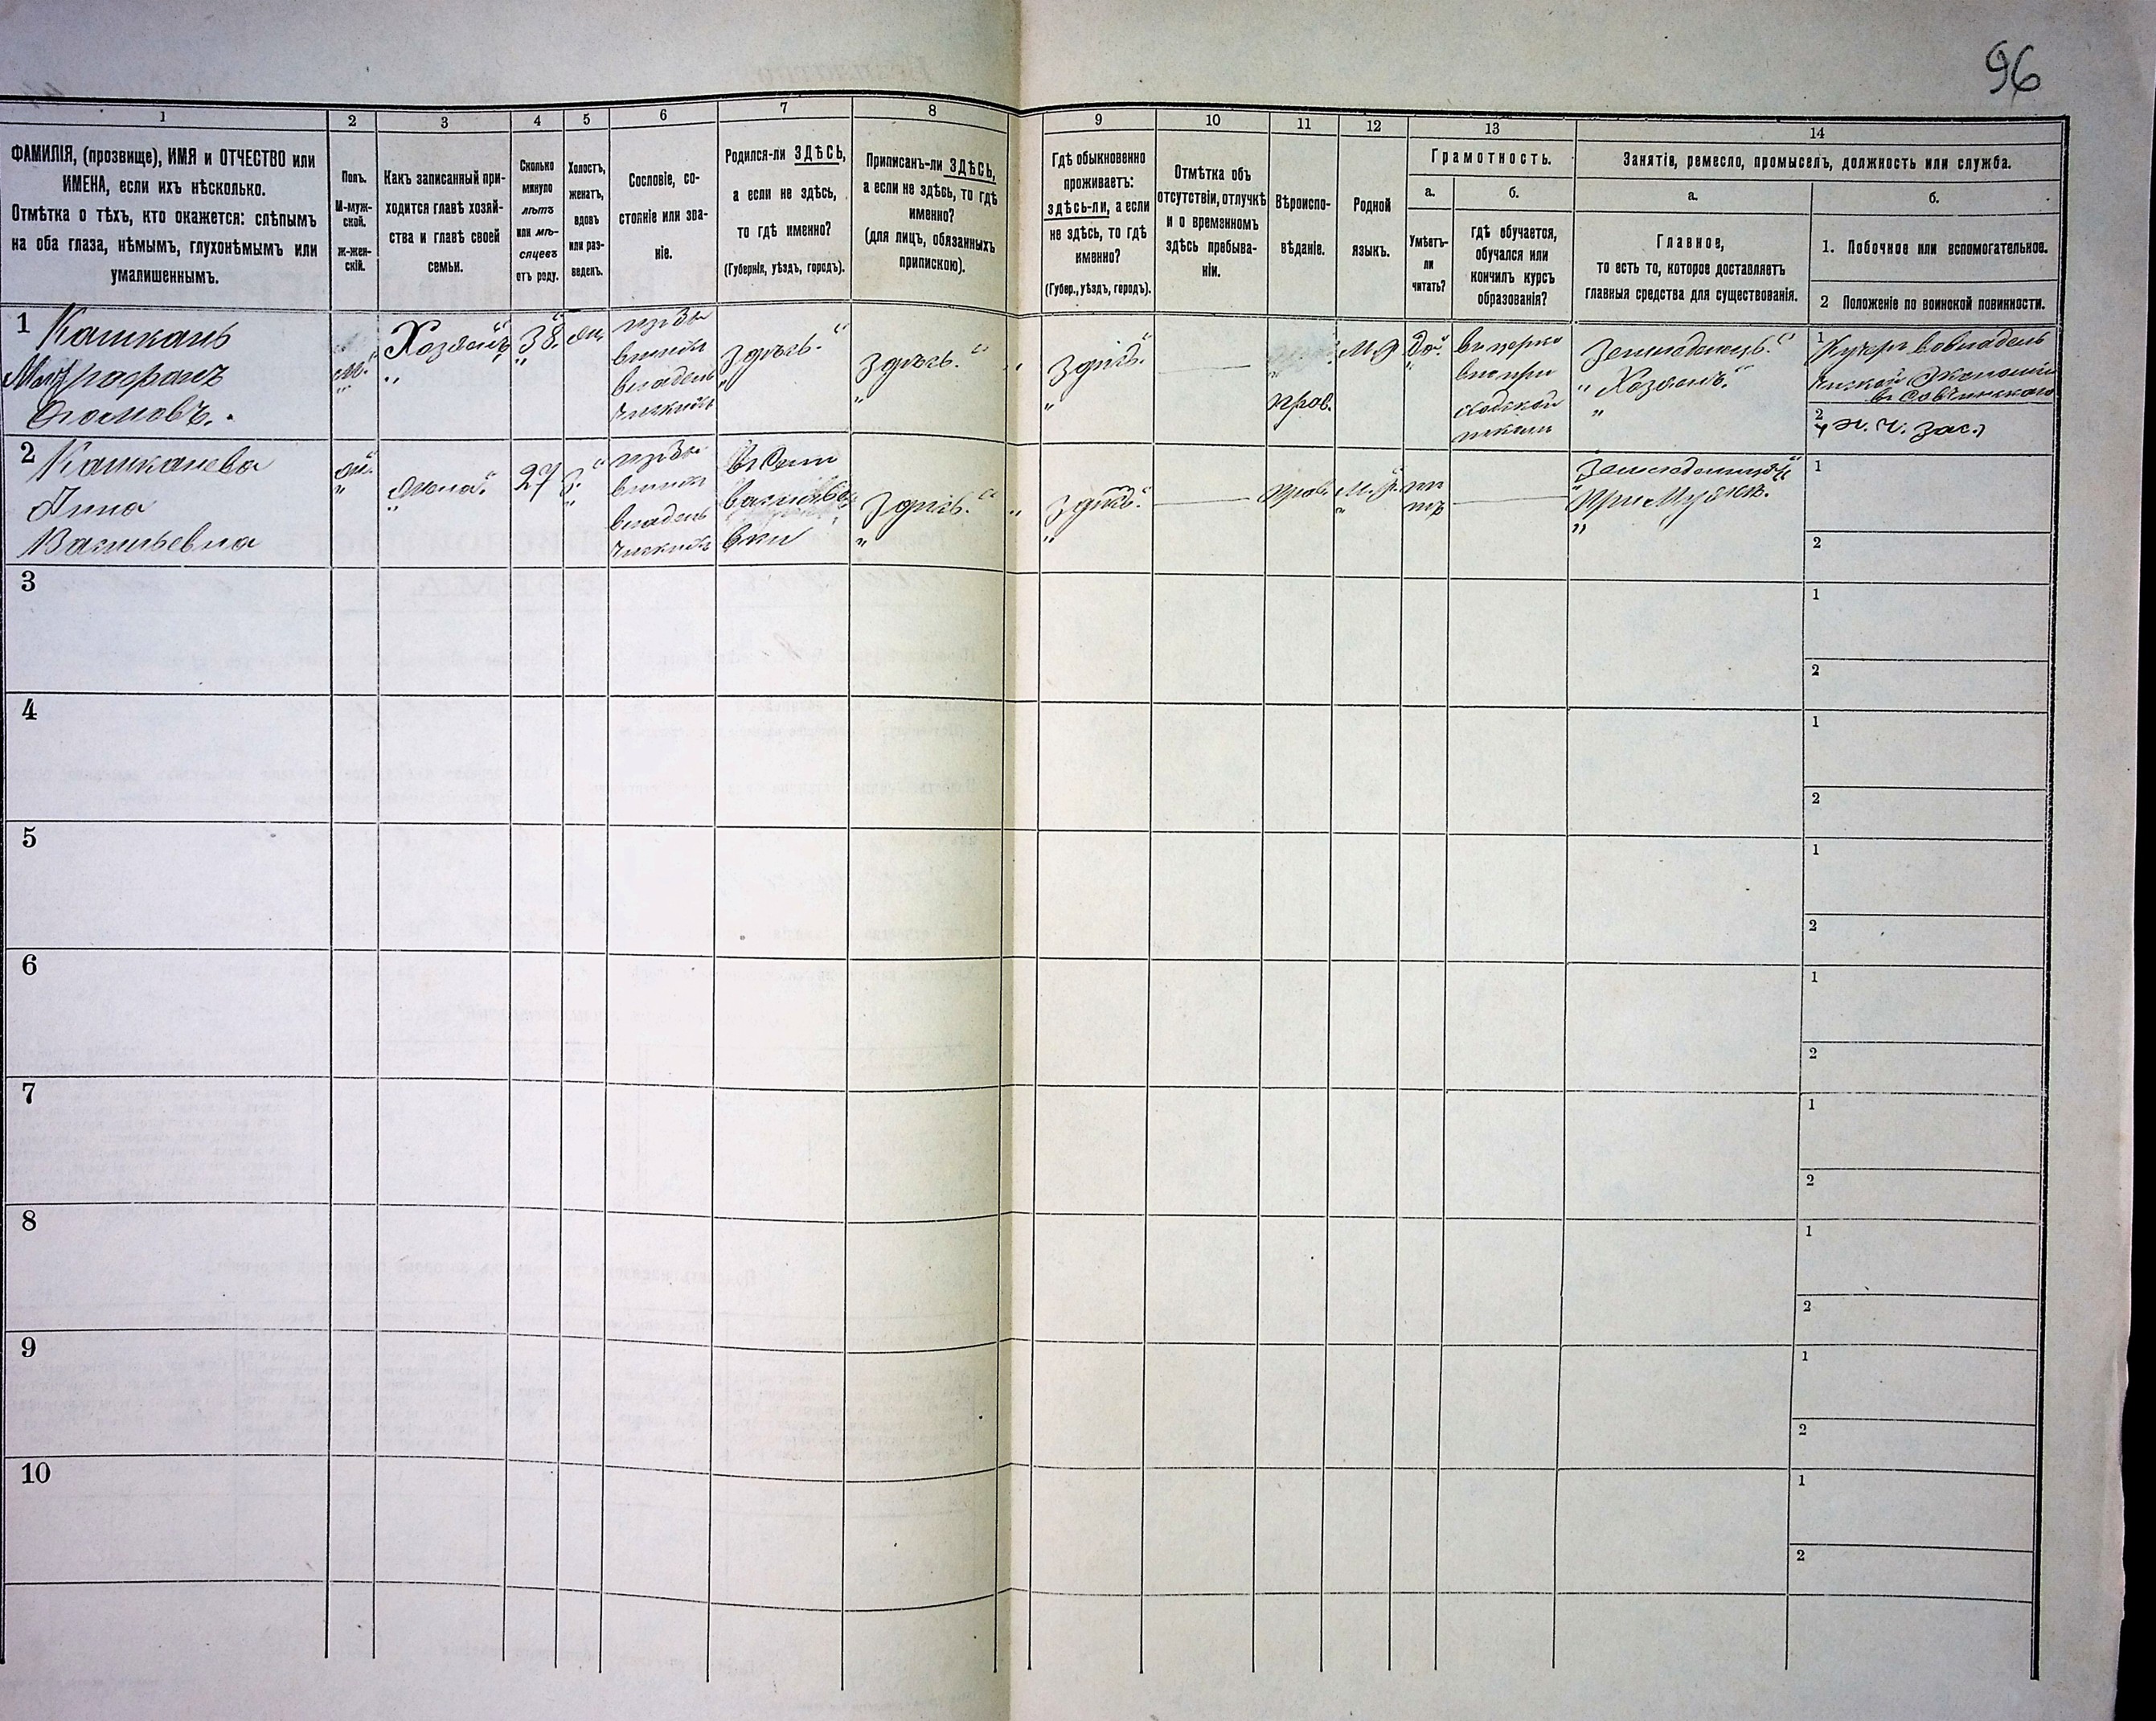 96
1
2
3
4
5
6
7
8
9
10
11
12
13
14
ФАМИЛІЯ, (прозвище), ИМЯ и ОТЧЕСТВО или
ИМЕНА, если ихъ нѣсколько.
Отмѣтка о тѣхъ, кто окажется: слѣпымъ
на оба глаза, нѣмымъ, глухонѣмымъ или
умалишеннымъ.
Полъ.
М-муж-
ской.
ж-жен-
скій.
Какъ записанный при-
ходится главѣ хозяй-
ства и главѣ своей
семьи.
Сколько
минуло
лѣтъ
или мѣ-
сяцевъ
отъ роду.
Холостъ,
женатъ,
вдовъ
или раз-
веденъ.
Сословіе, со-
стояніе или зва-
ніе.
Родился-ли ЗДѢСЬ,
а если не здѣсь,
то гдѣ именно?
(Губернія, уѣздъ, городъ).
Приписанъ-ли ЗДѢСЬ,
а если не здѣсь, то гдѣ
именно?
(для лицъ, обязанныхъ
припискою).
Гдѣ обыкновенно
проживаетъ:
здѣсь-ли, а если
не здѣсь, то гдѣ
именно?
(Губер., уѣздъ, городъ).
Отмѣтка объ
отсутствіи, отлучкѣ
и о временномъ
здѣсь пребыва-
ніи.
Вѣроиспо-
вѣданіе.
Родной
языкъ.
Грамотность.
а.
б.
Умѣетъ-
ли
читать?
гдѣ обучается,
обучался или
кончилъ курсъ
образованія?
Занятія, ремесло, промыселъ, должность или служба.
а.
б.
Главное,
то есть то, которое доставляетъ
главныя средства для существованія.
1. Побочное или вспомогательное.
2 Положеніе по воинской повинности.
1
Кашкань
Митрофанъ
м.
Хозяинъ
38.
жен.
изъ бы
вшихъ
владель
ческихъ
Здѣсь.
Здѣсь.
Здѣсь.
прав.
М.Р.
Да.
въ церко
вно при
ходской
школѣ
Земледѣлецъ.
Хозяинъ.
1
Кучеръ
2
2
Кашканева
Анна
Васильевна
ж.
жена.
27
З.
изъ бы
вшихъ
владель
ческихъ
Здѣсь.
Здѣсь.
прав.
М.Р.
нѣ
тъ
При мужѣ.
1
2
3
1
2
4
1
2
5
1
2
6
1
2
7
1
2
8
1
2
9
1
2
10
1
2